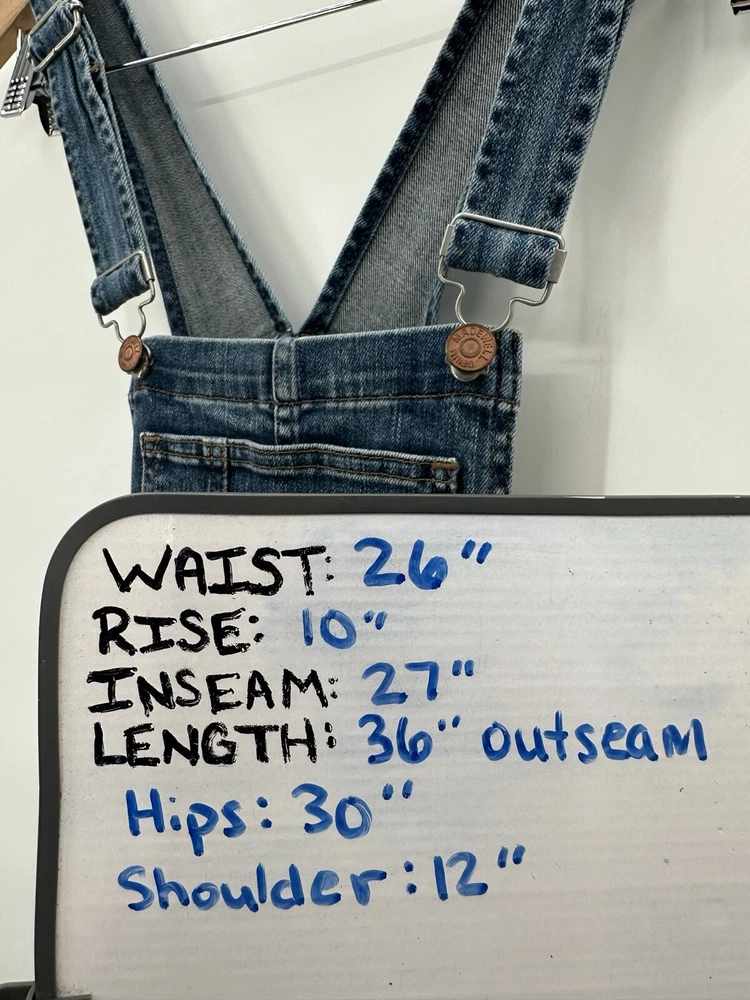 MADEWELL
DENIM
WAIST: 26"
RISE: 10"
INSEAM: 27"
LENGTH: 36" outseam
Hips: 30"
Shoulder: 12"